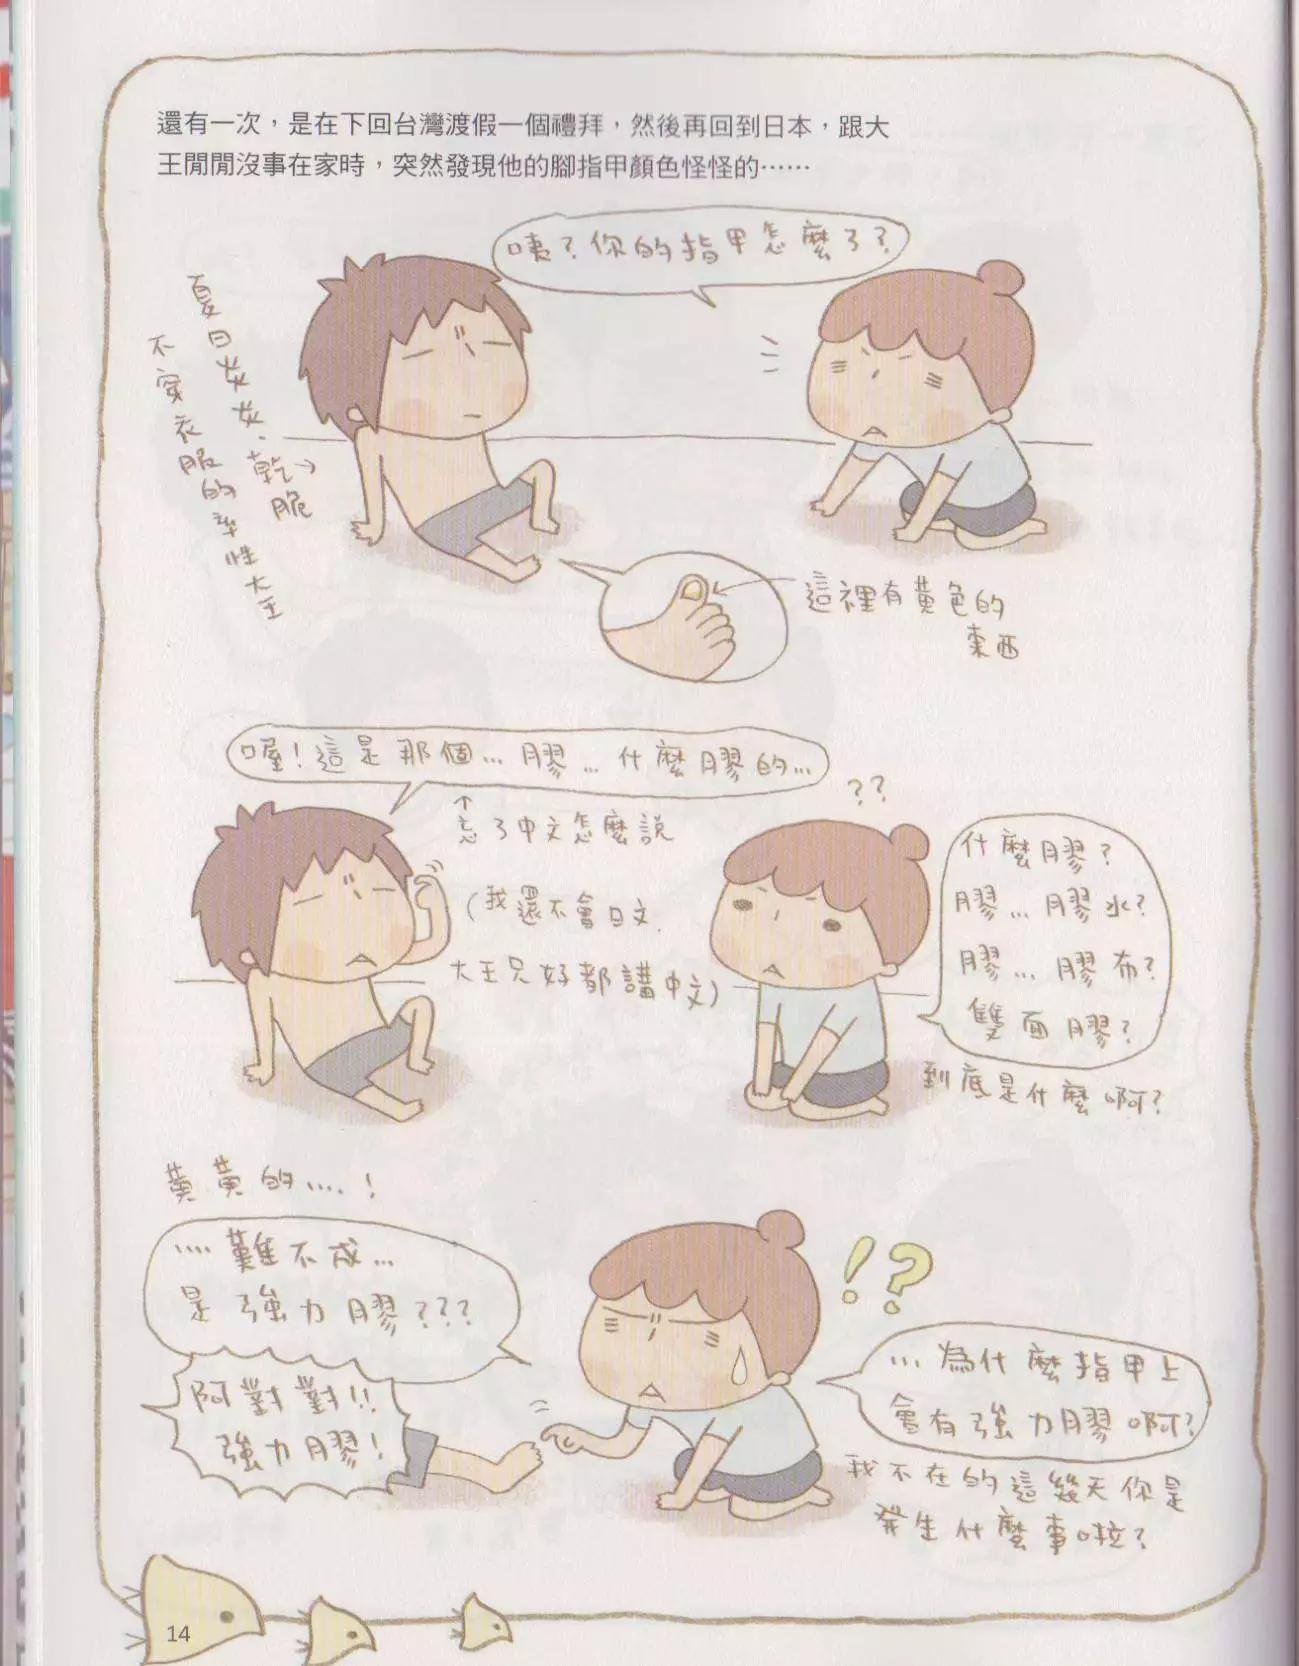 還有一次，是在下回台灣渡假一個禮拜，然後再回到日本，跟大
王閒閒沒事在家時，突然發現他的腳指甲顏色怪怪的⋯⋯
咦？你的指甲怎麼了？
夏日炎炎，乾脆
不穿衣服的率性大王
這裡有黃色的
東西
喔！這是那個...膠...什麼膠的...
忘了中文怎麼說
(我還不會日文，
大王只好都講中文)
??
什麼膠？
膠...膠水？
膠...膠布？
雙面膠？
到底是什麼啊？
黃黃的....！
....難不成...
是強力膠？？？
阿對對！！
強力膠！
!?
...為什麼指甲上
會有強力膠啊？
我不在的這幾天你是
發生什麼事啦？
14